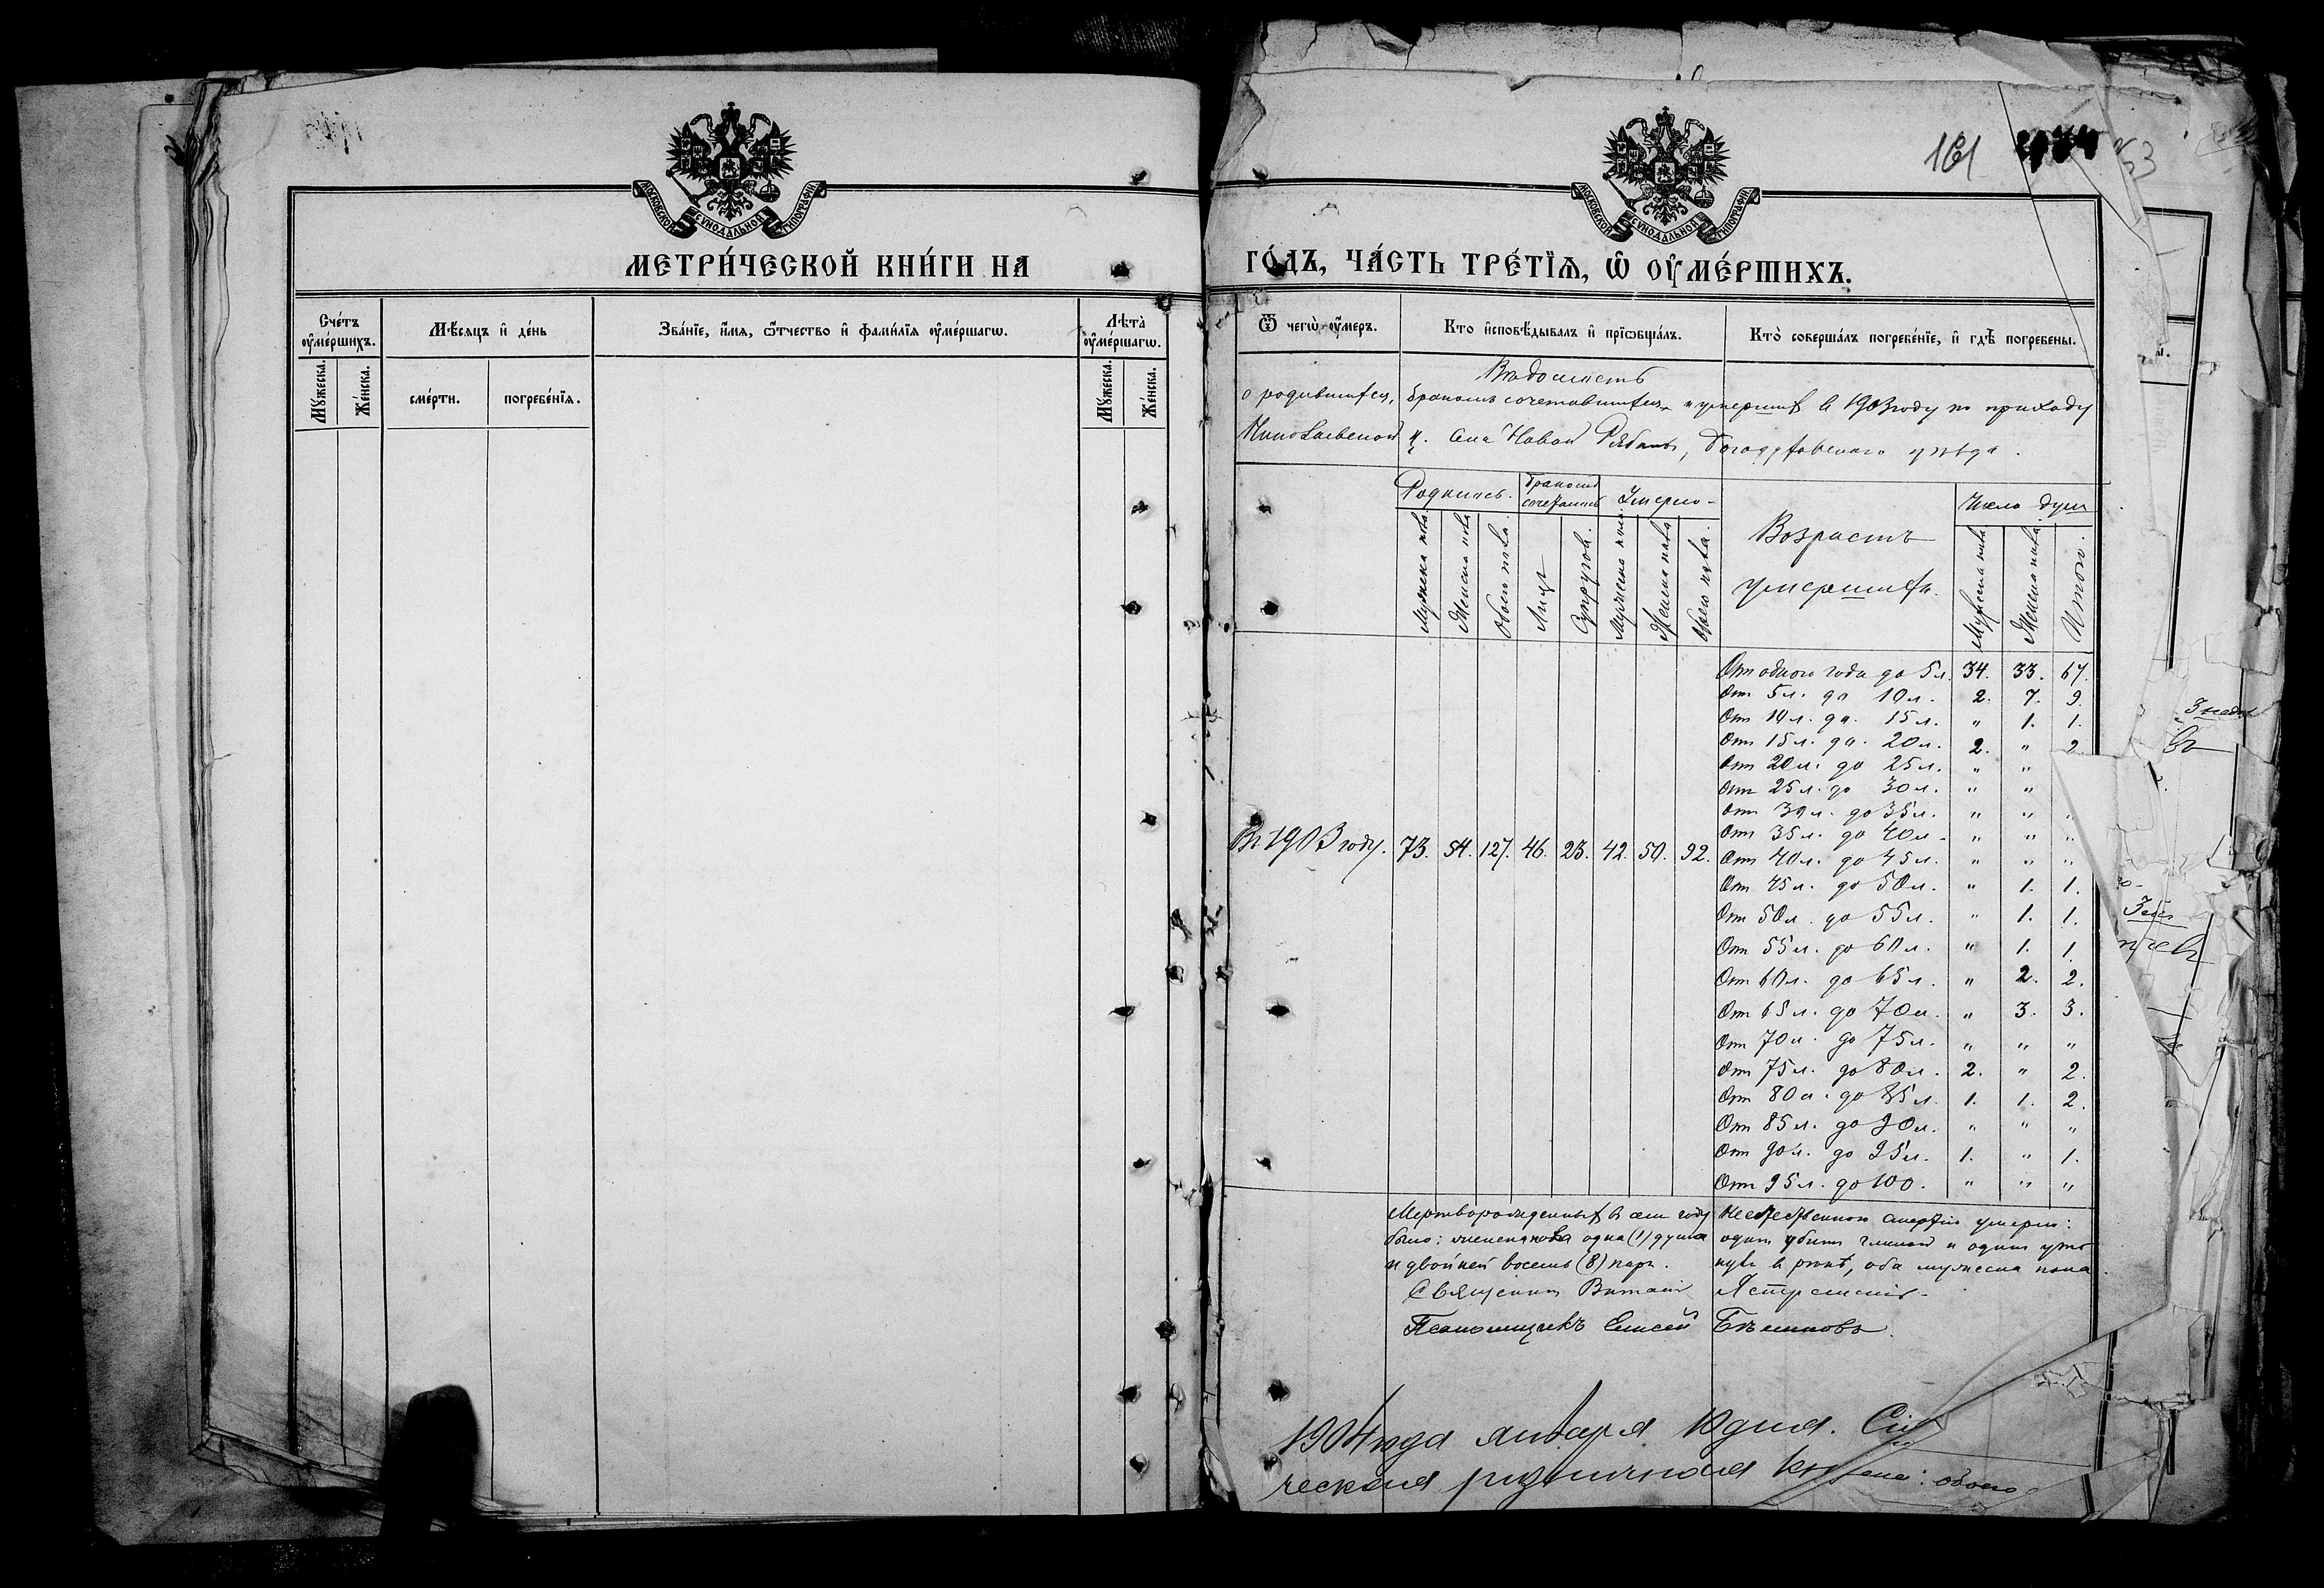 МОСКОВСКОЙ СѴНОДАЛЬНОЙ ТИПОГРАФІИ
МЕТРИ́ЧЕСКОЙ КНИ́ГИ НА
Сче́тъ ᲂу҆ме́ршихъ.
Мѣ́сяцъ и҆ де́нь
Зва́нїе, и҆́мя, ѻ҆́тчество и҆ фами́лїя ᲂу҆ме́ршагѡ.
Лѣта̀ ᲂу҆ме́ршагѡ.
Мꙋ́жеска.
Же́нска.
сме́рти.
погребе́нїя.
Мꙋ́жеска.
Же́нска.
161
53
МОСКОВСКОЙ СѴНОДАЛЬНОЙ ТИПОГРАФІИ
ГО́ДЪ, ЧА́СТЬ ТРЕ́ТЇѦ, Ѡ҆ ОУ҆МЕ́РШИХЪ.
Ѿ чегѡ̀ ᲂу҆́меръ.
Кто̀ и҆сповѣ́дывалъ и҆ прїѡбща́лъ.
Кто̀ соверша́лъ погребе́нїе, и҆ гдѣ̀ погребены̀.
Вѣдомость
о родившихся, бракомъ сочетавшихся и умершихъ въ 1903 году по приходу
Николаевской ц. села Новой Рябины, Богодуховскаго уѣзда.
Родилось.
Бракомъ сочеталось
Умерло
Возрастъ умершихъ.
Число душъ
Мужеска пола
Женска пола
Обоего пола
Лицъ
Супруговъ.
Мужеска пола.
Женска пола
Обоего пола.
Мужеска пола
Женска пола
Итого.
Въ 1903 году. 73. 54. 127. 46. 23. 42. 50. 92.
Отъ одного года до 5 л. 34. 33. 67.
Отъ 5 л. до 10 л. 2. 7. 9.
Отъ 10 л. до 15 л. " 1. 1.
Отъ 15 л. до 20 л. 2. " 2.
Отъ 20 л. до 25 л. " "
Отъ 25 л. до 30 л. " "
Отъ 30 л. до 35 л. " " "
Отъ 35 л. до 40 л. " " "
Отъ 40 л. до 45 л. " " "
Отъ 45 л. до 50 л. " 1. 1.
Отъ 50 л. до 55 л. " 1. 1.
Отъ 55 л. до 60 л. " 1. 1.
Отъ 60 л. до 65 л. " 2. 2.
Отъ 65 л. до 70 л. " 3. 3.
Отъ 70 л. до 75 л. " " "
Отъ 75 л. до 80 л. 2. " 2.
Отъ 80 л. до 85 л. 1. 1. 2.
Отъ 85 л. до 90 л. " " "
Отъ 90 л. до 95 л. 1. " 1.
Отъ 95 л. до 100. " " "
Мертворожденныхъ въ семъ году
было: женска пола одна (1) душа
и двойней восемь (8) паръ.
Неестественною смертію умерло:
одинъ убитъ глиной и одинъ уто
нулъ въ рѣкѣ, оба мужеска пола
Священникъ Виталій Ястремскій.
Псаломщикъ Елисей
1904 года января 10 дня. Сія
ческая ризничная